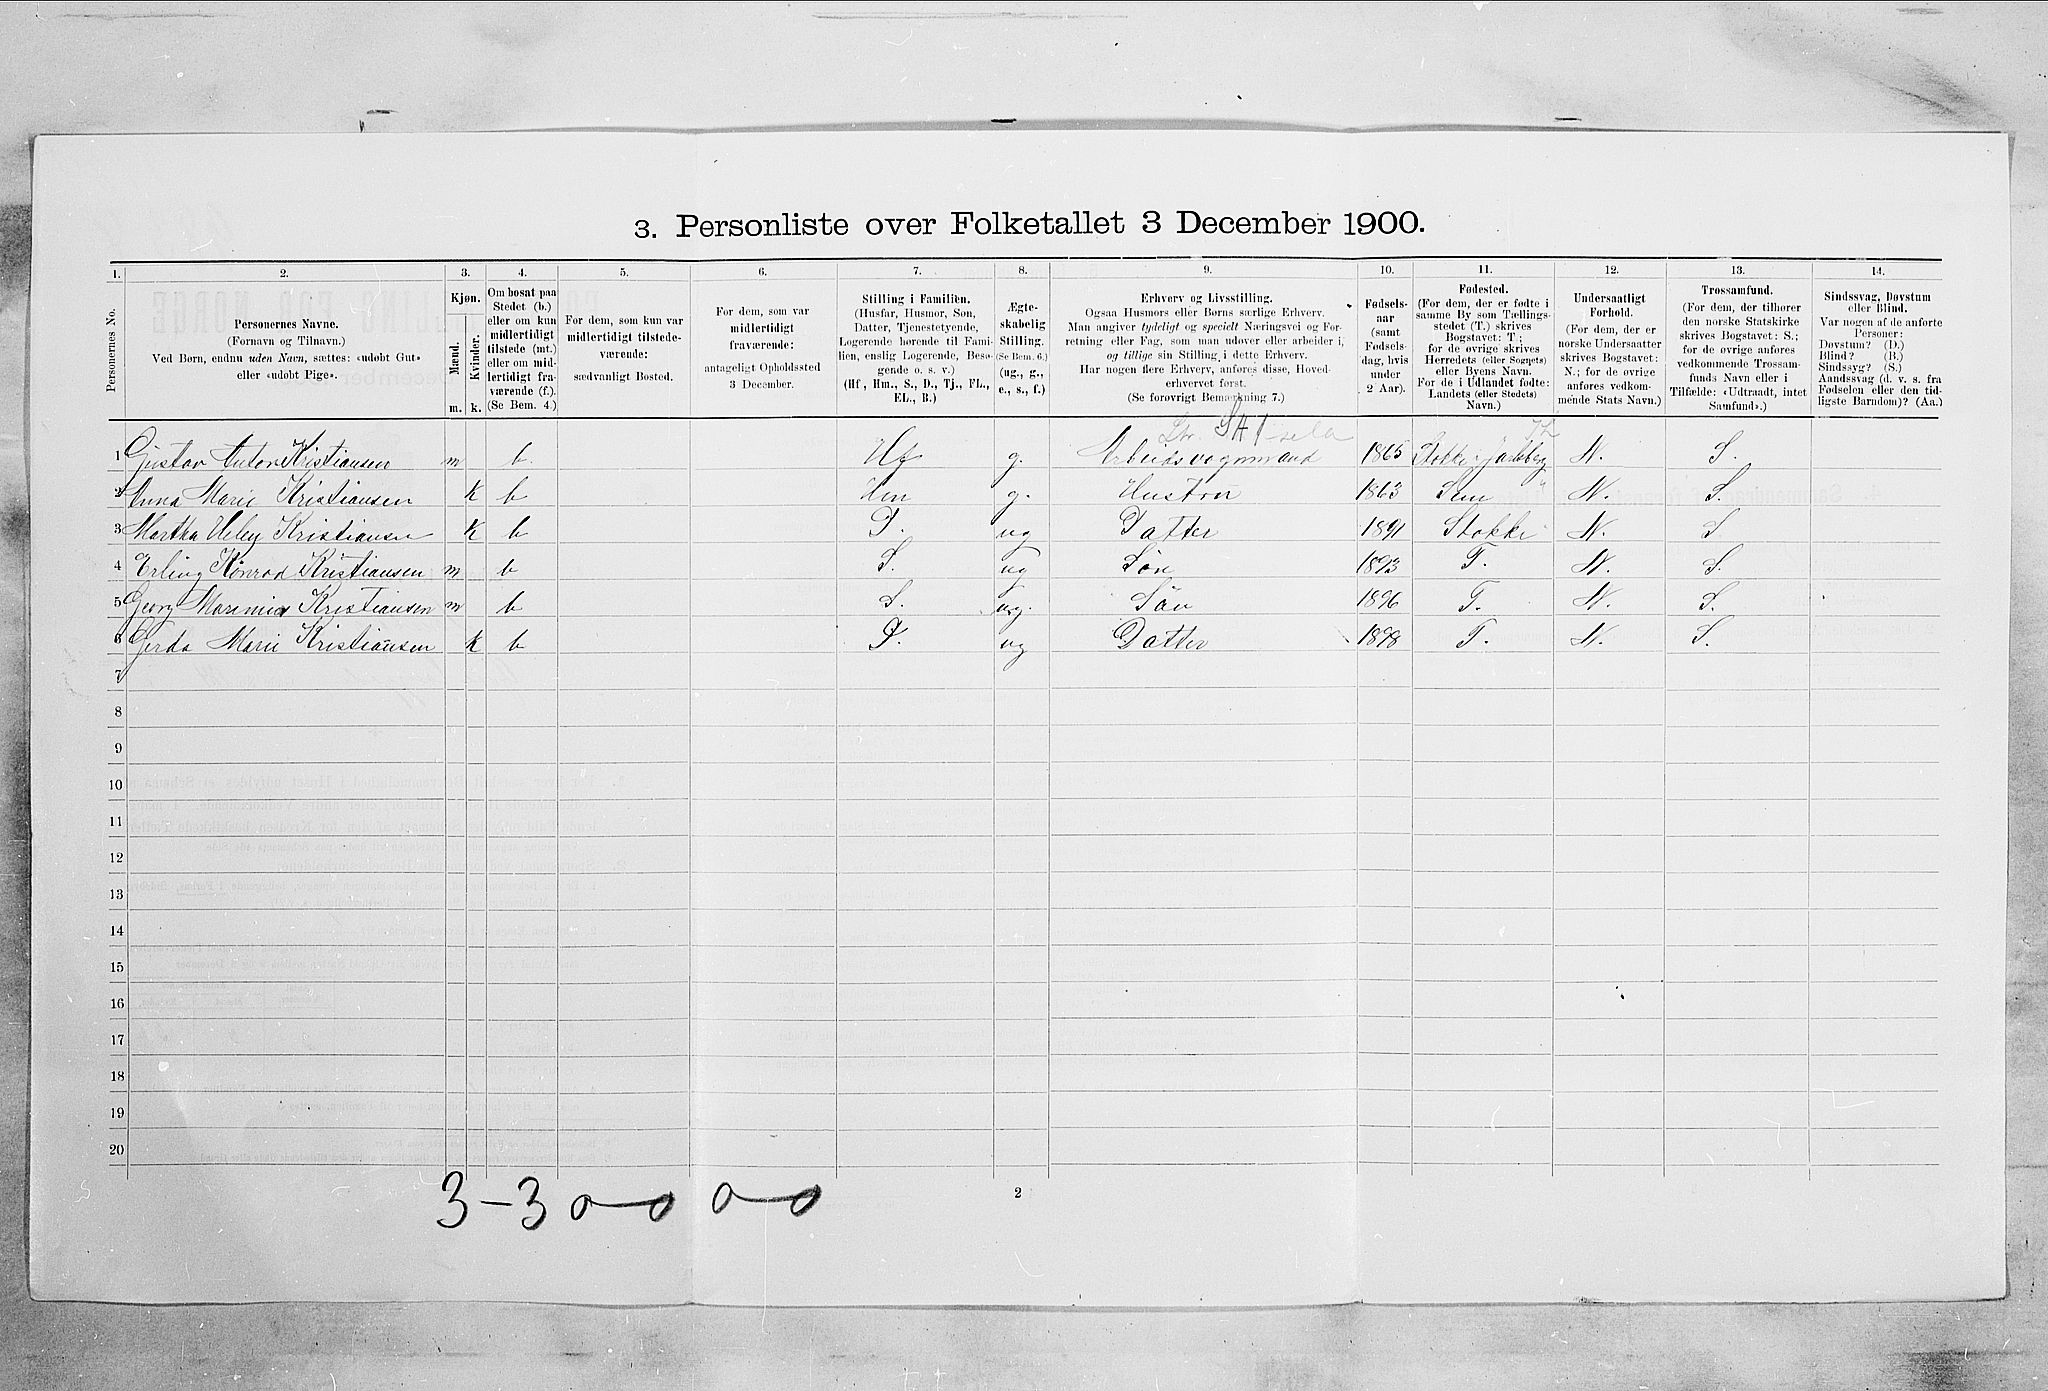 3. Personliste over Folketallet 3 December 1900.
1. 2. 3. 4. 5. 6. 7. 8. 9. 10. 11. 12. 13. 14.
Personernes No.
Personernes Navne.
(Fornavn og Tilnavn.)
Ved Børn, endnu uden Navn, sættes: «udøbt Gut»
eller «udøbt Pige».
Kjøn.
Mænd.
Kvinder.
m. k.
Om bosat paa
Stedet (b.)
eller om kun
midlertidigt
tilstede (mt.)
eller om mid-
lertidigt fra-
værende (f.).
(Se Bem. 4.)
For dem, som kun var
midlertidigt tilstede-
værende:
sædvanligt Bosted.
For dem, som var
midlertidigt
fraværende:
antageligt Opholdssted
3 December.
Stilling i Familien.
(Husfar, Husmor, Søn,
Datter, Tjenestetyende,
Logerende hørende til Fami-
lien, enslig Logerende, Besø-
gende o. s. v.)
(Hf, Hm., S., D., Tj., FL.,
EL., B.)
Ægte-
skabelig
Stilling.
(Se Bem. 6.)
(ug., g.,
e., s., f.)
Erhverv og Livsstilling.
Ogsaa Husmors eller Børns særlige Erhverv.
Man angiver tydeligt og specielt Næringsvei og For-
retning eller Fag, som man udøver eller arbeider i,
og tillige sin Stilling i dette Erhverv.
Har nogen flere Erhverv, anføres disse, Hoved-
erhvervet først.
(Se forøvrigt Bemærkning 7.)
Fødsels-
aar
(samt
Fødsels-
dag, hvis
under
2 Aar).
Fødested.
(For dem, der er fødte i
samme By som Tællings-
stedet (T.) skrives
Bogstavet: T;
for de øvrige skrives
Herredets (eller Sognets)
eller Byens Navn.
For de i Udlandet fødte:
Landets (eller Stedets)
Navn.)
Undersaatligt
Forhold.
(For dem, der er
norske Undersaatter
skrives Bogstavet:
N.; for de øvrige
anføres vedkom-
mende Stats Navn.)
Trossamfund.
(For dem, der tilhører
den norske Statskirke
skrives Bogstavet: S.;
for de øvrige anføres
vedkommende Trossam-
funds Navn eller i
Tilfælde: «Udtraadt, intet
Samfund».)
Sindssvag, Døvstum
eller Blind.
Var nogen af de anførte
Personer:
Døvstum? (D.)
Blind? (B.)
Sindssyg? (S.)
Aandssvag (d. v. s. fra
Fødselen eller den tid-
ligste Barndom)? (Aa.)
1 Gustav Anton Kristiansen m b. Hf g. Arbeidsvognmand 1865 Stokke i Jarlsberg N. S.
2 Anna Marie Kristiansen K b Hm g. Hustru 1863 Sem N. S.
3 Martha Kristiansen K b D. ug Datter 1891 Stokke N. S
4 Erling Konrad Kristiansen m b S. ug Søn 1893 T. N. S.
5 Georg Kristiansen m b S. ug. Søn 1896 T. N. S.
6 Gerda Marie Kristiansen K b D. ug Datter 1898 T. N. S.
7
8
9
10
11
12
13
14
15
16
17
18
19
20
3-3 0-0 0-0
2